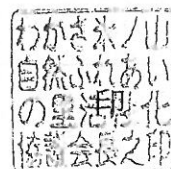 わかさ氷ノ山
自然ふれあい
の里活性化
協議会長之印
印